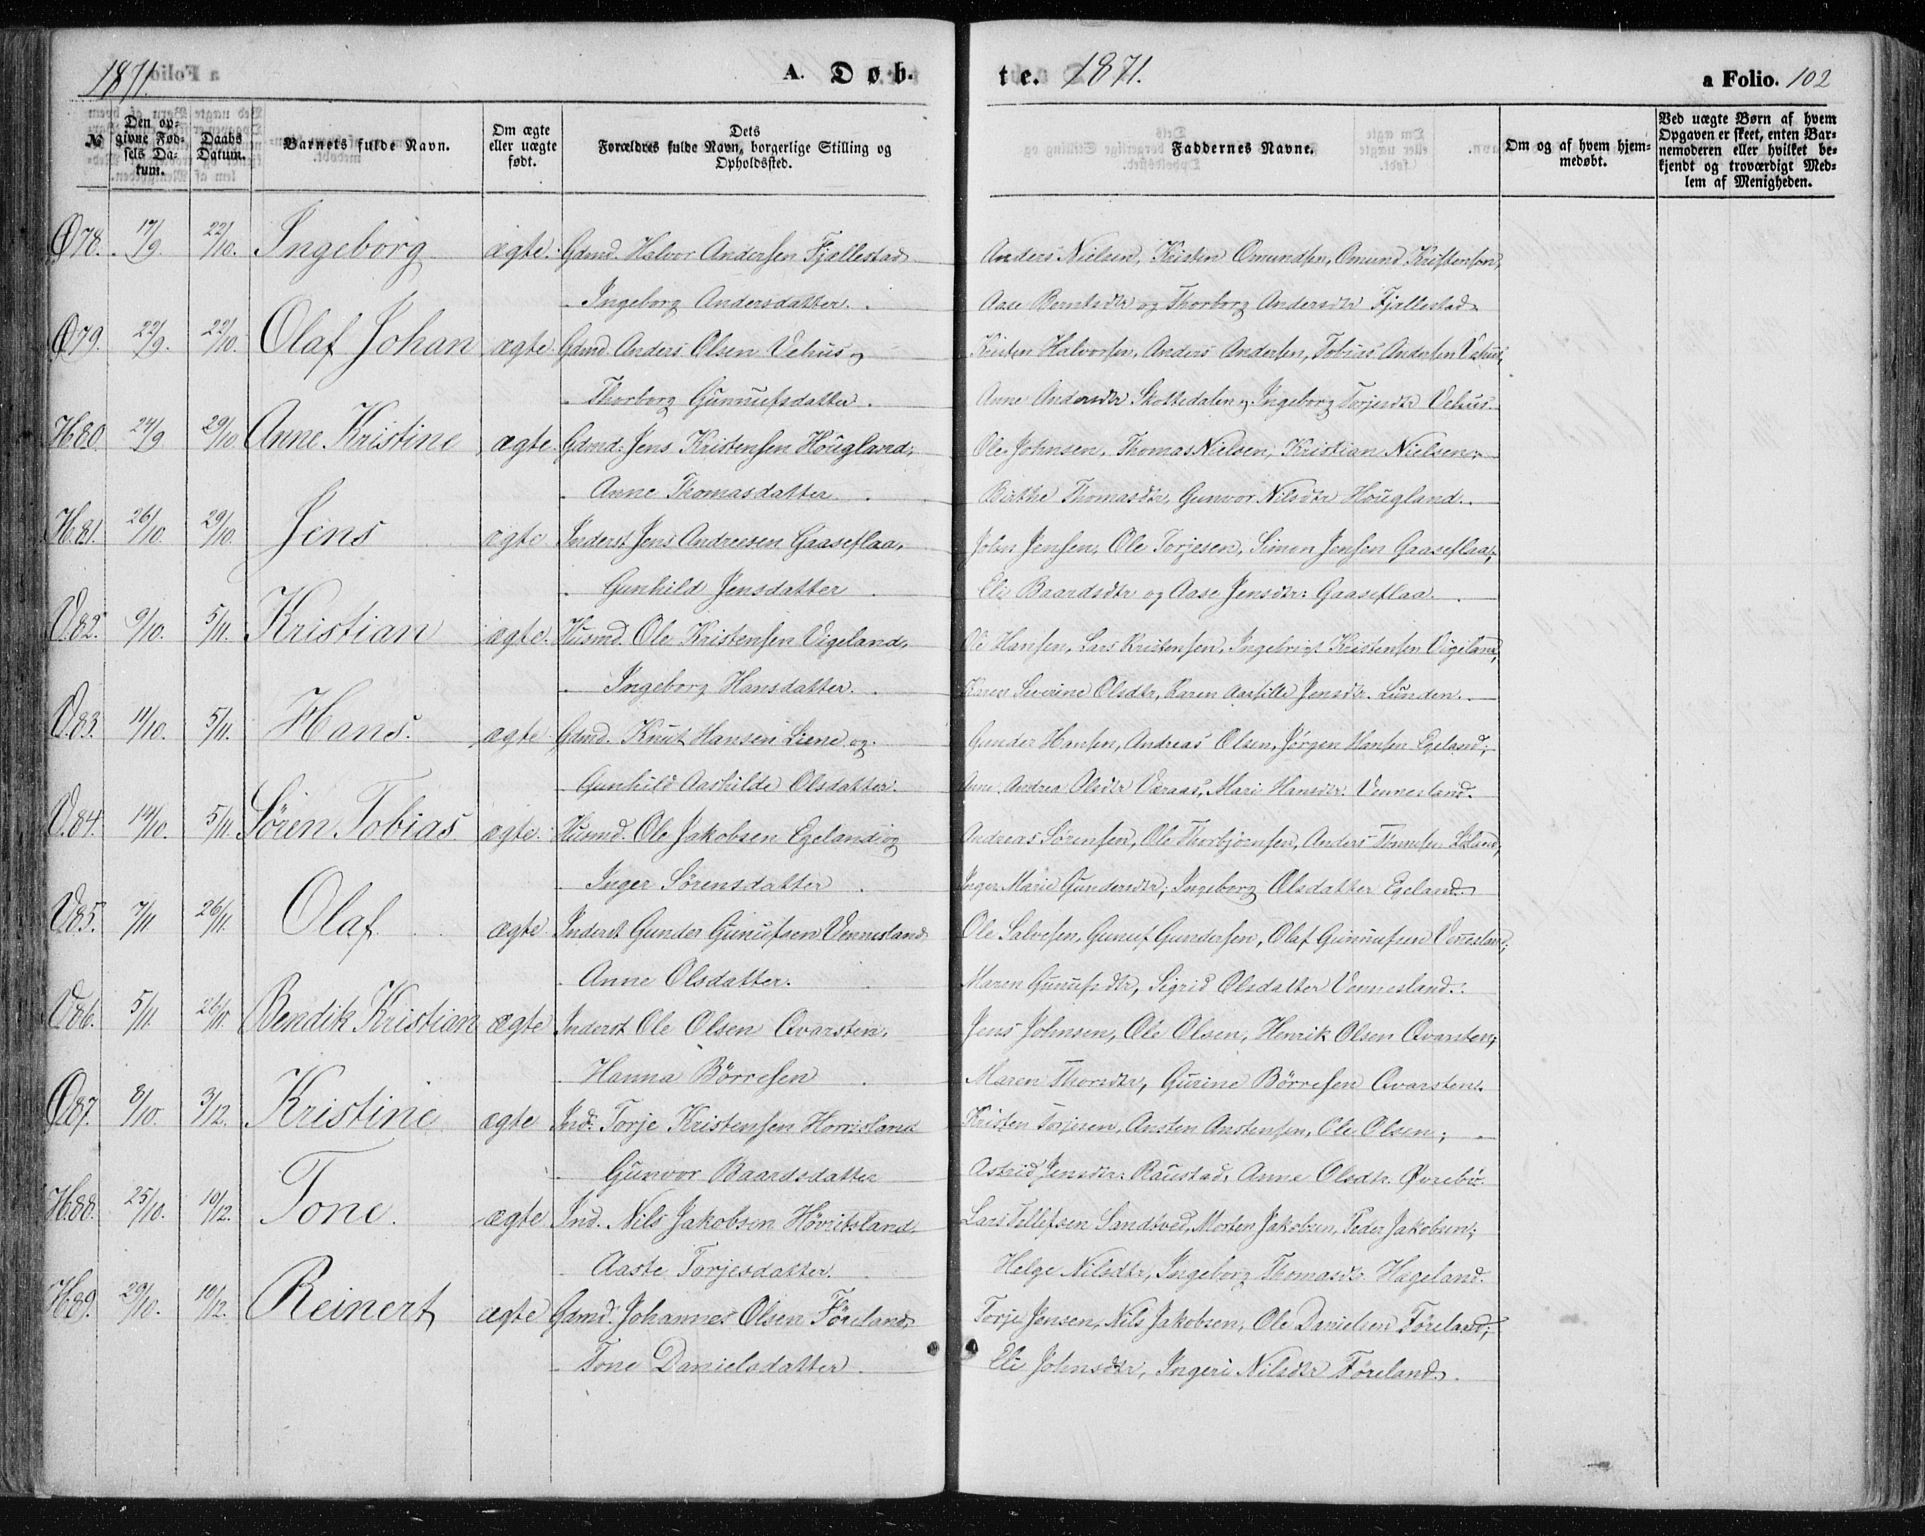 1871. A. Døb- te. 1871. a Folio. 102
№ Den opgivne Fødsels Datum. Daabs Datum. Barnets fulde Navn. Om ægte eller uægte født. Dets Forældres fulde Navn, borgerlige Stilling og Opholdssted. Faddernes Navne. Om og af hvem hjemmedøbt. Ved uægte Børn af hvem Opgaven er skeet, enten Barnemoderen eller hvilket bekjendt og troværdigt Medlem af Menigheden.
Ø78. 17/9. 22/10. Ingeborg ægte. Gdmd. Halvor Andersen Fjællestad Anders Nielsen, Kristen Omundsen, Omund Kristensen,
Ingeborg Andersdatter. Aase Berntsdtr og Thorborg Andersdtr Fjællestad
Ø79. 22/9. 22/10. Olaf Johan ægte Gdmd Anders Olsen Vehus og Kristen Halvorsen, Anders Andersen, Tobias Andersen Vehus,
Thorborg Gunnufsdatter. Anne Andersdtr Skottedalen og Ingeborg Torjesdtr Vehus.
H.80. 24/9 29/10. Anne Kristine ægte. Gdmd: Jens Kristensen Hougland, Ole Johnsen, Thomas Nielsen, Kristian Nielsen,
Anne Thomasdatter. Bærthe Thomasdtr, Gunvor Nilsdtr Hougland.
H.81. 26/10. 29/10. Jens ægte Inderst Jens Andreesen Gaaseflaa, John Jensen, Ole Torjesen, Simon Jensen Gaaseflaa,
Gunhild Jensdatter Eli Baardsdtr og Aase Jensdtr: Gaaseflaa.
V.82. 9/10. 5/11. Kristian ægte. Husmd. Ole Kristensen Vigeland, Ole Hansen, Lars Kristensen, Ingebrigt Kristensen Vigeland,
Ingeborg Hansdatter. Karen Severine Olsdtr, Karen Aasille Jensdtr. Lunden.
V.83. 11/10. 5/11. Hans. ægte Gdmd. Knut Hansen Liene og Gunder Hansen, Andreas Olsen, Jörgen Hansen Egeland,
Gunhild Aashilde Olsdatter. Anne Andrea Olsdtr Væraas, Mari Hansdtr. Vennesland.
V.84. 14/10. 5/11. Søren Tobias ægte. Husmd. Ole Jakobsen Egeland og Andreas Sørensen, Ole Thorbjørnsen, Anders Hansen
Inger Sørensdatter Inger Marie Gundersdtr, Ingeborg Olsdatter Egeland.
V.85. 7/11 26/11. Olaf ægte. Inderst Gunder Gunufsen Vennesland Ole Salvesen, Gunuf Gundersen, Olaf Gunnufsen Vennesland,
Anne Olsdatter. Maren Gunufsdtr, Sigrid Olsdatter Vennesland.
V.86. 5/11. 26/11. Bendik Kristian ægte Inderst Ole Olsen Qvarsten, Jens Johnsen, Ole Olsen, Henrik Olsen Qvarsten,
Hanna Börresen Maren Thorsdtr, Gurine Börresen Qvarsten.
Ø87. 8/10. 3/12. Kristine ægte Ind. Torje Kristensen Horrisland Kristen Torjesen, Ansten Anstensen, Ole Olsen;
Gunvor Baardsdatter Astrid Jensdtr: Raustad, Anne Olsdtr. Øvrebö.
H.88. 25/10. 10/12. Tone. ægte Ind. Nils Jakobsen Hövritsland, Lars Tellefsen Sandved, Morten Jakobsen, Peder Jakobsen,
Aaste Torjesdatter. Helge Nilsdtr, Ingeborg Thomasdtr. Hægeland.
H.89. 29/10. 10/12. Reinert ægte Gdmd. Johannes Olsen Føreland, Torje Jensen, Nils Jakobsen, Ole Danielsen Føreland;
Tone Danielsdatter. Eli Johnsdtr, Ingeri Nilsdtr Føreland.